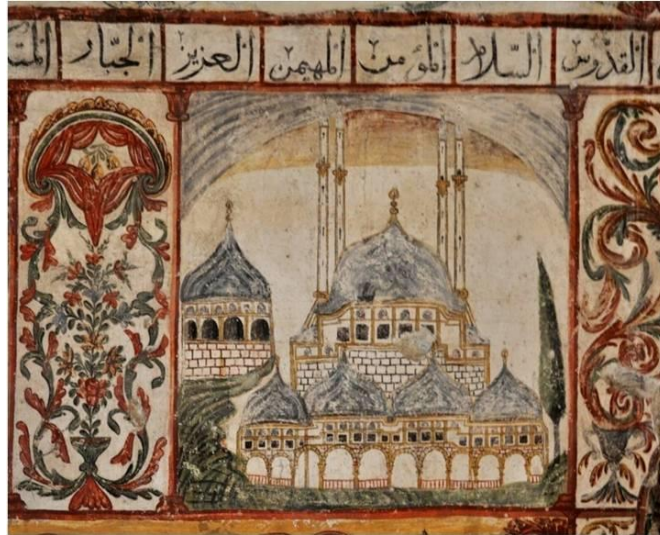 القدّوس السّلام المؤمن المهيمن العزيز الجبّار المتك